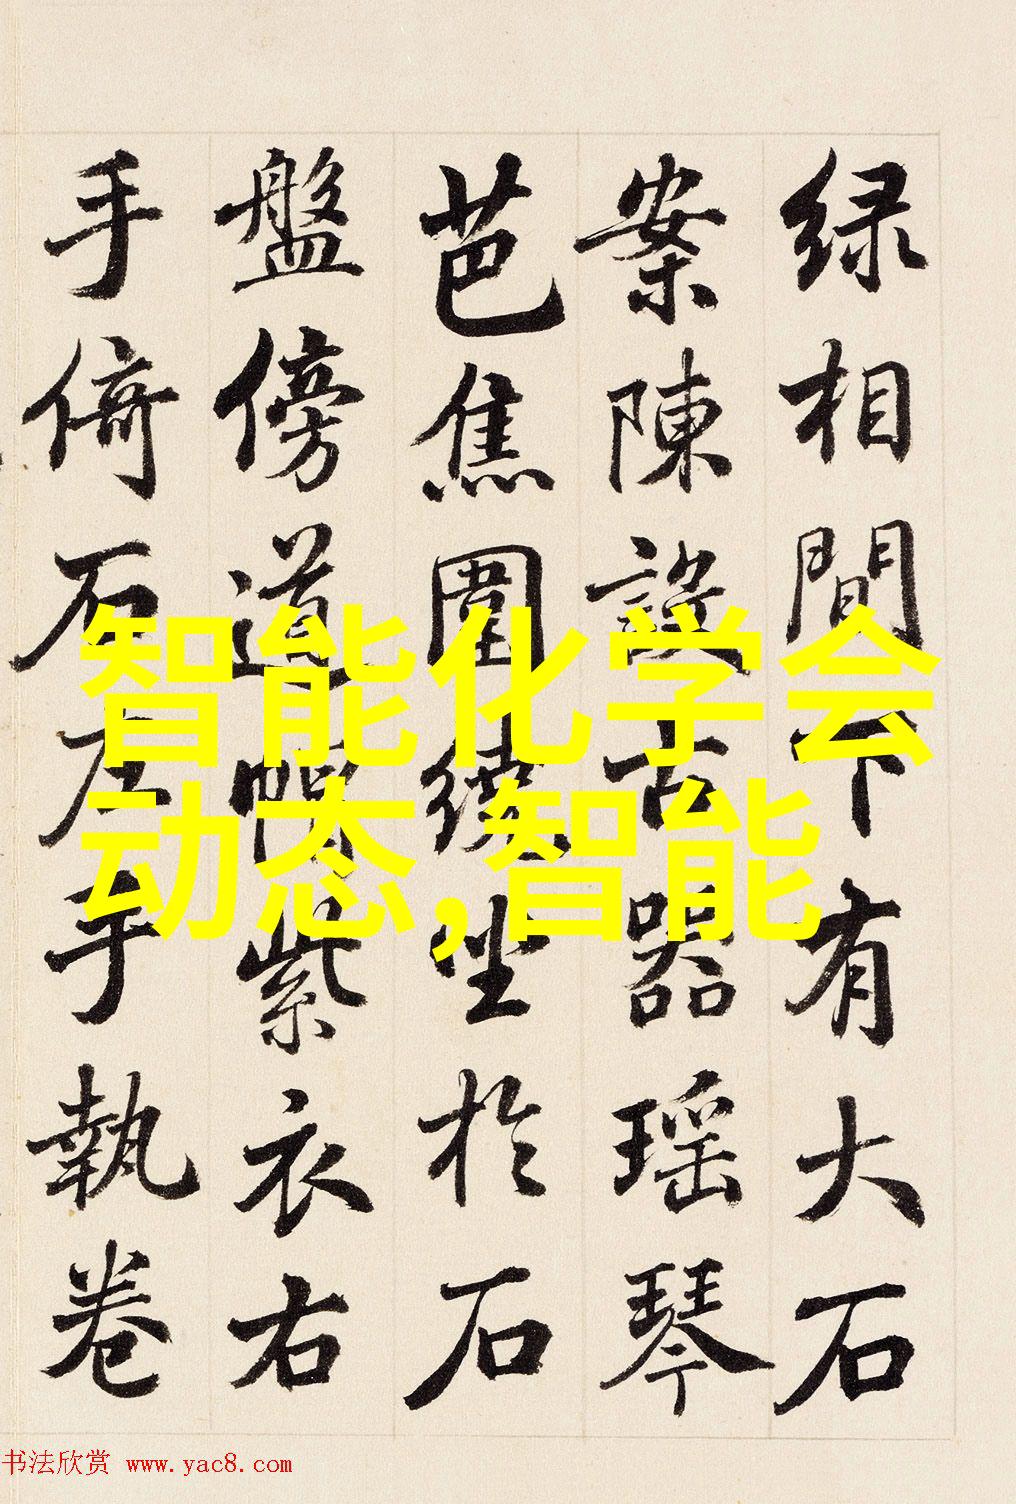 绿相間下有大石
案陳設古器瑶琴
芭焦圍繞坐於石
盤傍道帽紫衣右
手倚石左手執卷
智能化学会
动态,智能
书法欣赏 www.yac8.com